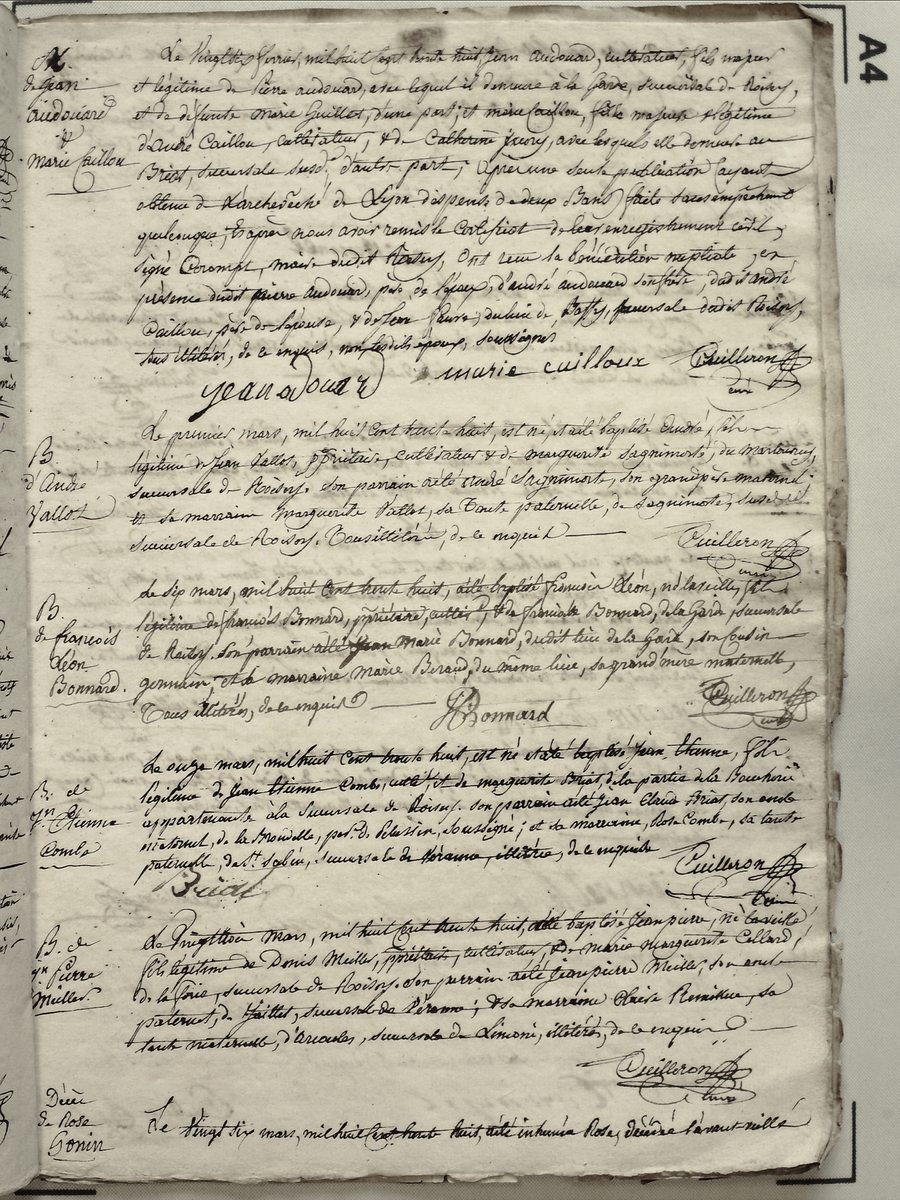 M.
de Jean
audouard
&
Marie Caillou
Le Vingt six fevrier, mil huit cent trente huit, jean audouard, cultivateur, fils majeur
et légitime de pierre audouard, avec lequel il demeure à la Garde, succursale de Roisey,
et de défunte marie Guillot, d'une part; et marie Caillou, fille majeure & légitime
d'andré Caillou, cultivateur, & de Catherine, avec lesquels elle demeure au
Briat, succursale susd. d'autre part; après une seule publication (ayant
obtenu de l'archevêché de Lyon dispense de deux Bans) faite sans empêchement
quelconque, & après nous avoir remis le certificat de leur enregistrement civil,
signé, maire dudit Roisey, ont reçu la bénédiction nuptiale, en
présence dudit pierre audouard, père de l'époux, d'andré audouard son frère, dudit andré
Caillou, père de l'épouse, & de Jean faure, du lieu de, succursale dudit Roisey,
tous illitérés, de ce enquis, non lesdits époux, soussignés
jean adouard marie cailloux Cuilleron
curé
B
d'André
Vallot
Le premier mars, mil huit cent trente huit, est né et a été baptisé andré, fils
légitime de Jean Vallot, ppriétaire, cultivateur & de marguerite Sagnimorte, du
succursale de Roisey. son parrain a été andré Sagnimorte, son grand père maternel
et sa marraine Marguerite Vallot, sa tante paternelle, de Sagnimorte, susdite
succursale de Roisey. Tous illitérés, de ce enquis
Cuilleron
curé
B
de françois
Léon
Bonnard.
Le six mars, mil huit cent trente huit, a été baptisé françois Léon, né la veille, fils
légitime de françois Bonnard, ppriétaire, cultivr, & de françoise Bonnard, de la Garde, succursale
de Roisey. son parrain a été Jean Marie Bonnard, dudit lieu de la Garde, son cousin
germain, et sa marraine Marie Beraud, du même lieu, sa grand'mère maternelle,
Tous illitérés, de ce enquis
Bonnard Cuilleron
curé
B. de
Jn Etienne
Combe
Le onze mars, mil huit cent trente huit, est né et a été baptisé jean Etienne, fils
légitime de Jean Etienne Combe, cultr, et de marguerite Briat, de la partie de la
appartenante à la succursale de Roisey. son parrain a été Jean Claude Briat, son oncle
maternel, de la, par. de Pélussin, soussigné; et sa marraine, Rose Combe, sa tante
paternelle, de St. Sabin, succursale de Véranne, illitérée, de ce enquise
Briat Cuilleron
curé
B. de
jn Pierre
Meiller
Le Vingt trois mars, mil huit cent trente huit, a été baptisé Jean pierre, né la veille
fils légitime de Denis Meiller, ppriétaire, cultivateur, & de marie marguerite Cellard,
de la, succursale de Roisey. son parrain a été jean pierre Meiller, son oncle
paternel, de, succursale de Véranne; & sa marraine Claire, sa
tante maternelle, d', succursale de Limoni, illitérés, de ce enquis
Cuilleron
curé
Décès
de Rose
Gonin
Le vingt six mars, mil huit cent trente huit, a été inhumée Rose, décédée l'avant veille